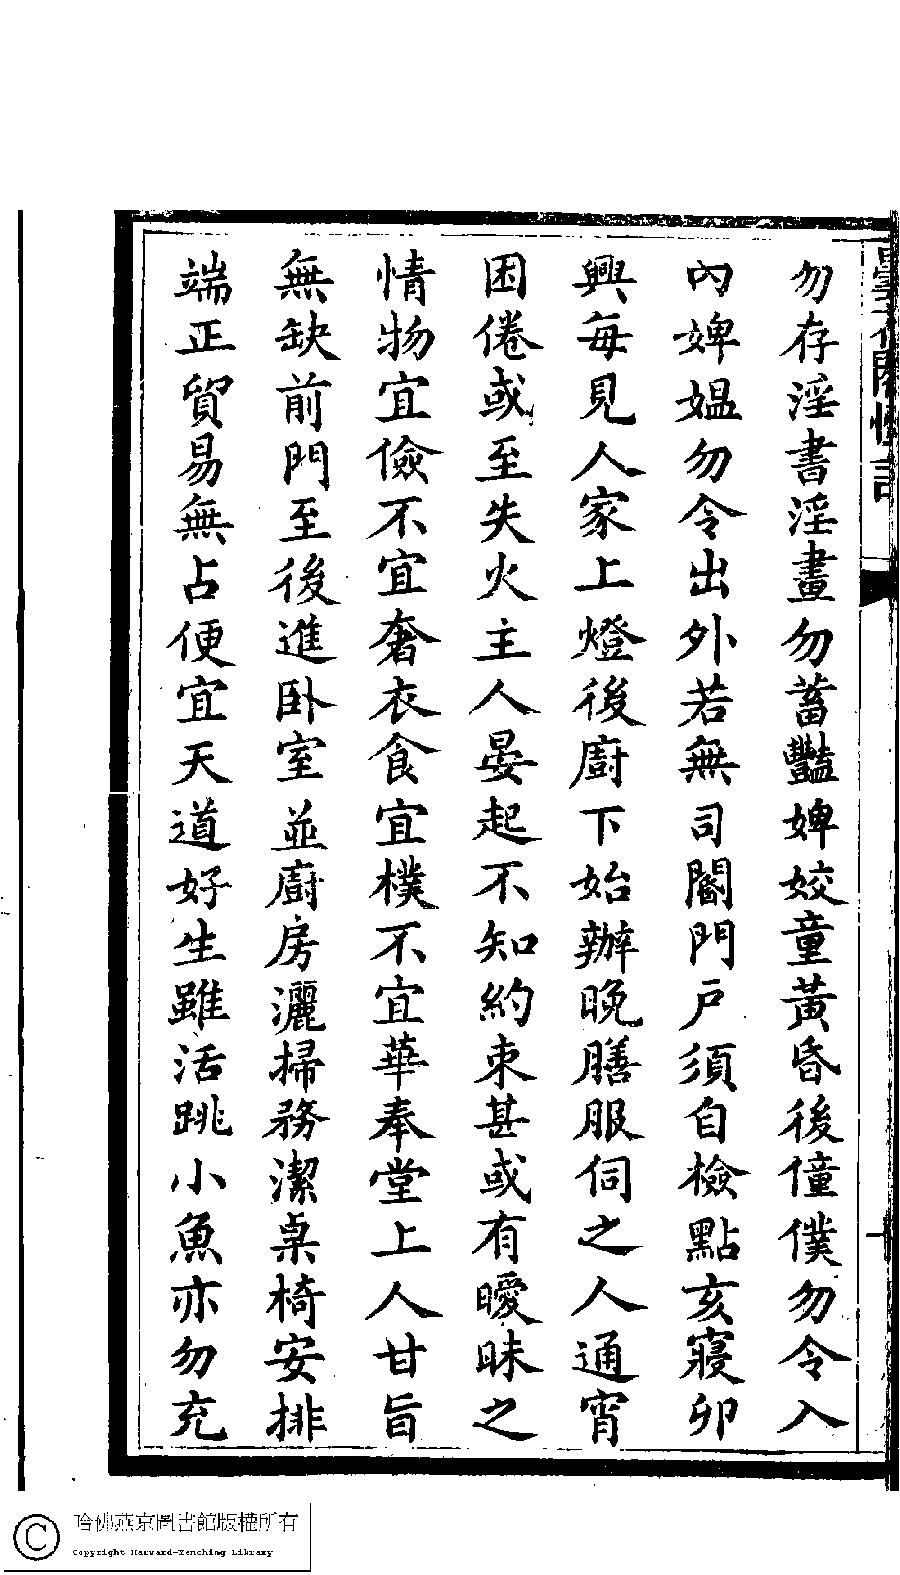 勿存淫書淫畫勿蓄豔婢姣童黃昏後僮僕勿令入
內婢媼勿令出外若無司閽門戶須自檢點亥寢卯
興每見人家上燈後廚下始辦晚膳服伺之人通宵
困倦或至失火主人晏起不知約束甚或有曖昧之
情物宜儉不宜奢衣食宜樸不宜華奉堂上人甘旨
無缺前門至後進卧室並廚房灑掃務潔桌椅安排
端正貿易無占便宜天道好生雖活跳小魚亦勿充
哈佛燕京圖書館版權所有
Copyright Harvard-Yenching Library